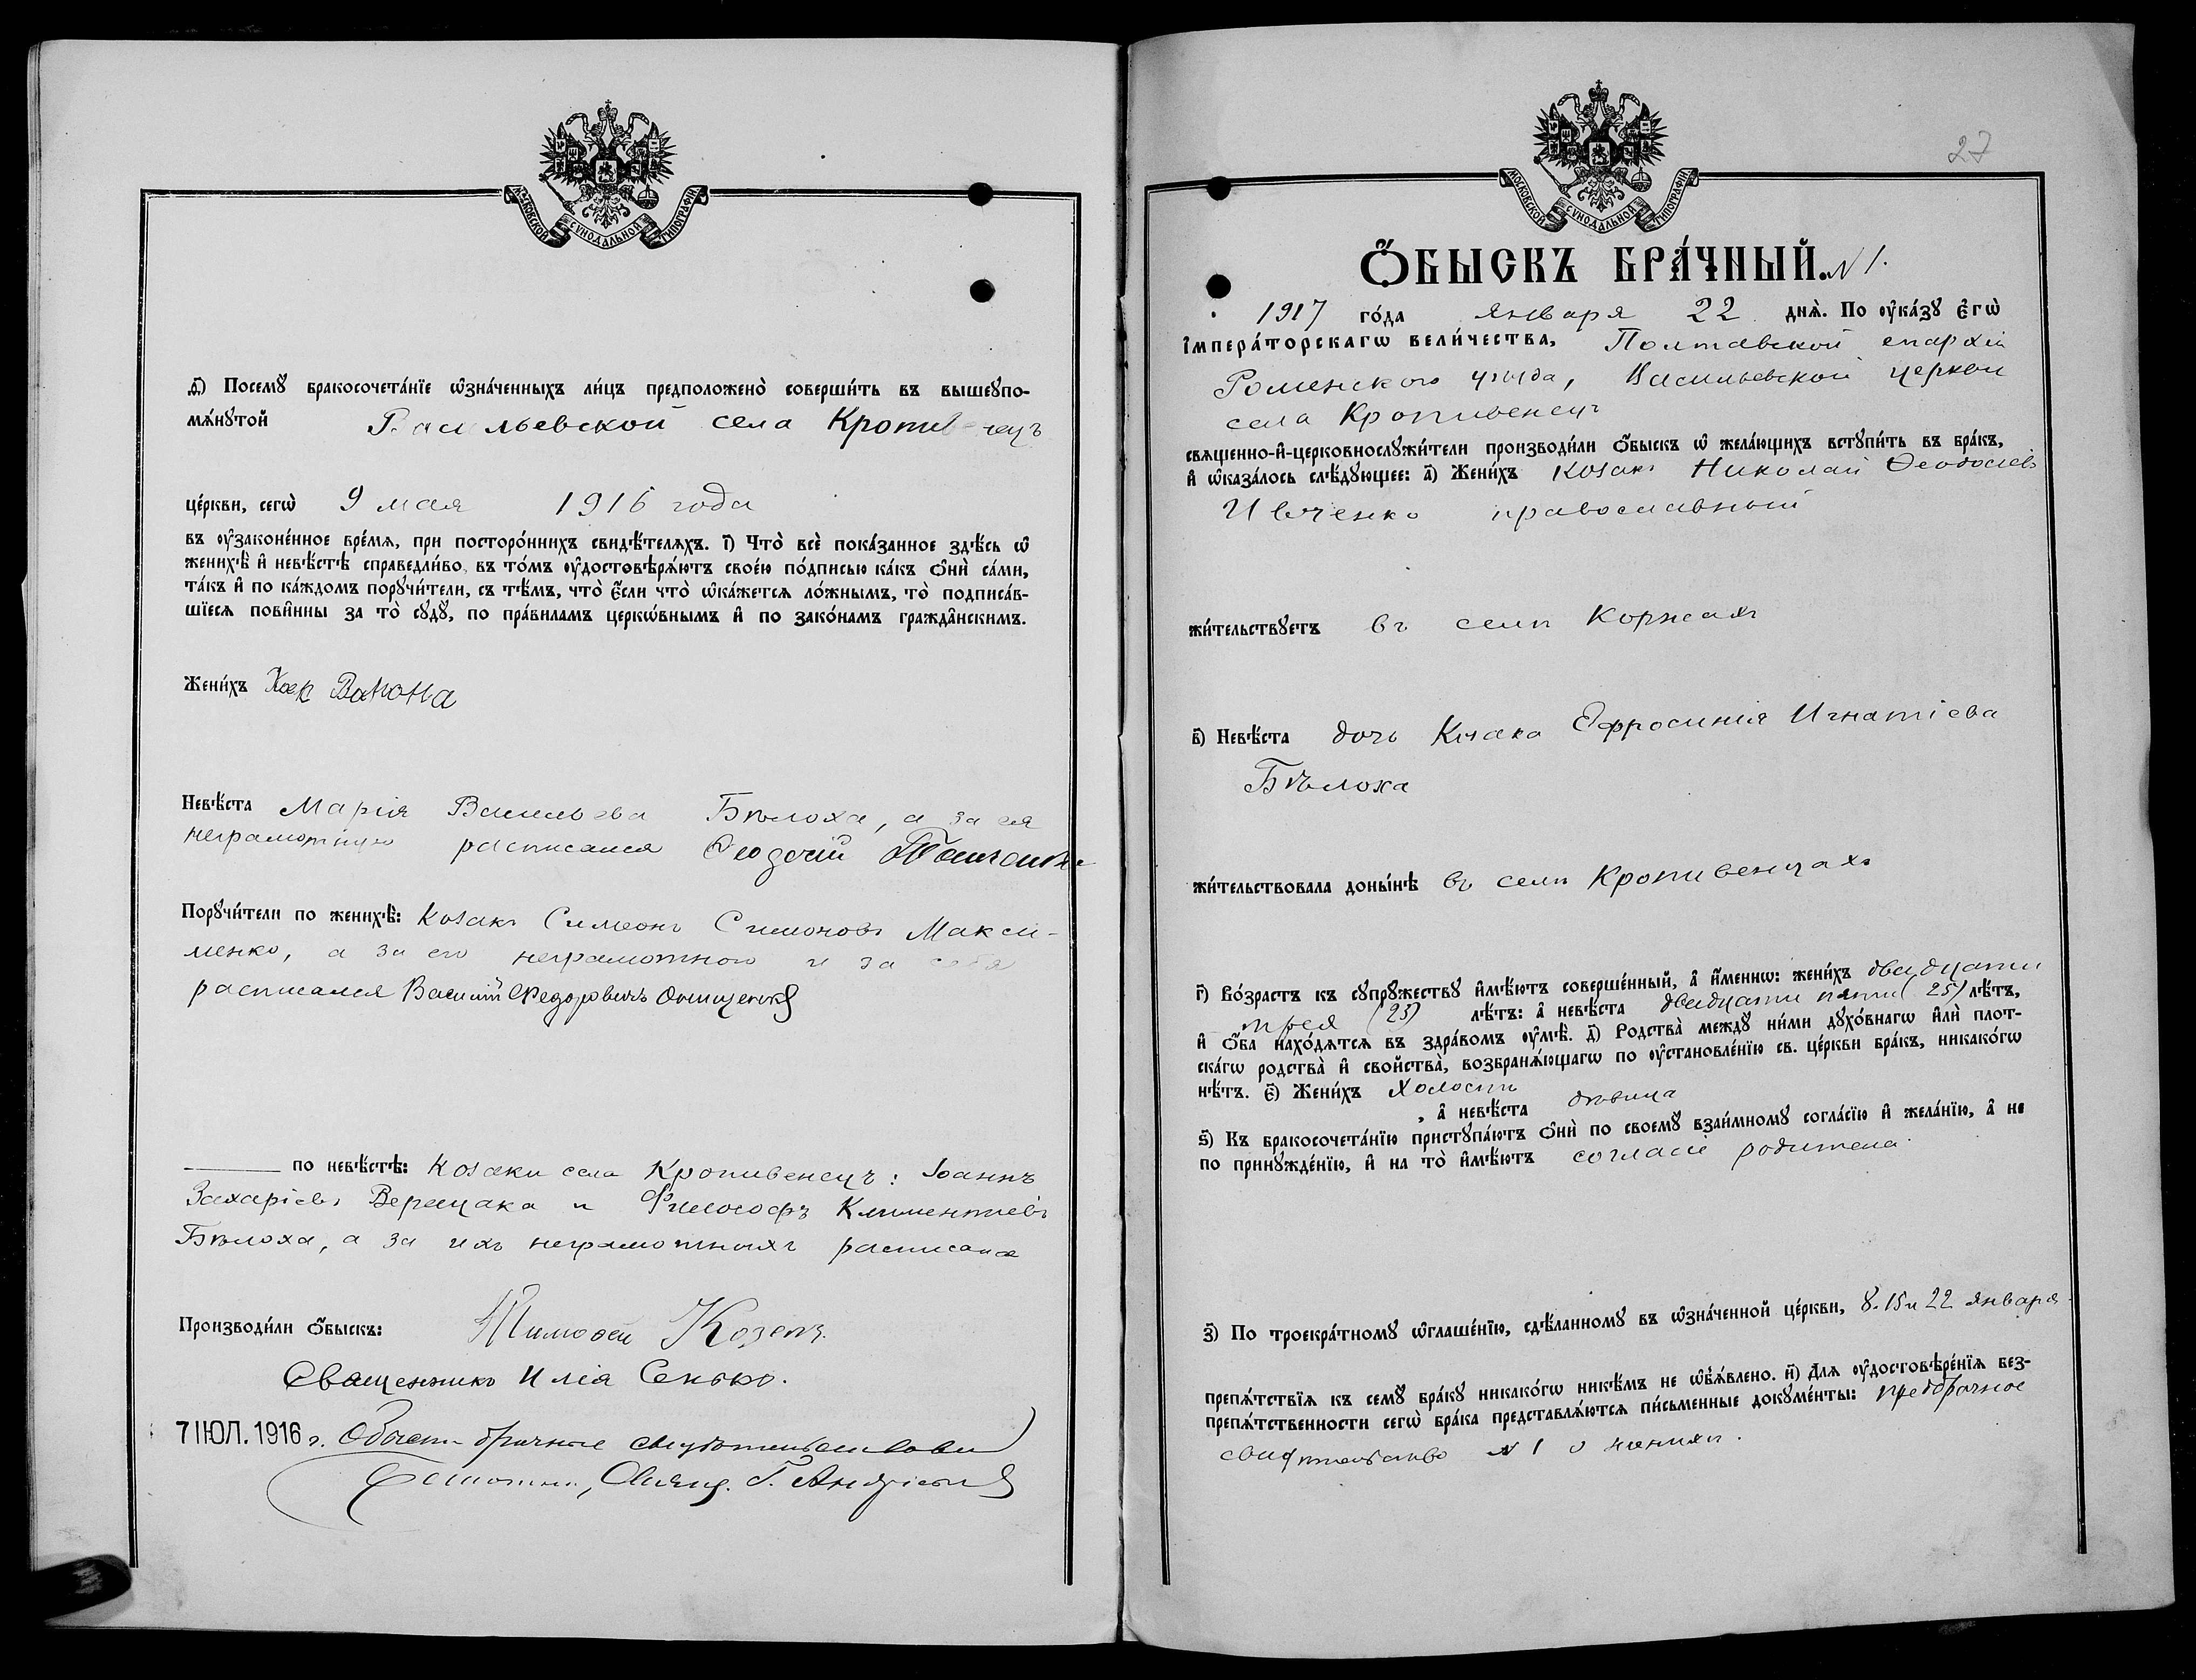 МОСКОВСКОЙ СѴНОДАЛЬНОЙ ТИПОГРАФІИ
д҃) Посемꙋ бракосочета́нїе ѡзна́ченныхъ ли́цъ предположено̀ соверши́ть въ вышеꙋпо-
мѧ́нꙋтой Васильевской села Кропивенецъ
це́ркви, сегѡ̀ 9 мая 1916 года
въ ᲂу҆законе́нное вре́мѧ, при посторо́ннихъ свидѣ́телѧхъ. і҃) Что̀ всѐ пока́занное здѣ́сь ѡ҆
женихѣ̀ и҆ невѣ́стѣ справедли́во, въ то́мъ ᲂу҆достовѣрѧ́ютъ свое́ю по́дписью ка́къ ѻ҆нѝ са́ми,
та́къ и҆ по ка́ждомъ порꙋчи́тели, съ тѣ́мъ, что̀ є҆́сли что̀ ѡ҆ка́жетсѧ ло́жнымъ, то̀ подписа́в-
шїесѧ пови́нны за то̀ сꙋдꙋ̀, по пра́виламъ церкѡ́внымъ и҆ по зако́намъ гражда́нскимъ.
Жени́хъ
Невѣ́ста Марія Васильева Бѣлоха, а за ея
неграмотную расписался Ѳеодосій
Порꙋчи́тели по женихѣ̀: козакъ Симеонъ Симоновъ Макси-
менко, а за его неграмотного и за себя
расписался Василій Федоровичъ Онищенко
по невѣ́стѣ: козаки села Кропивенецъ: Іоаннъ
Захаріевъ Верещака и Философъ Климентіевъ
Бѣлоха, а за ихъ неграмотныхъ расписался
Тимоѳей Козелъ.
Производи́ли ѻ҆́быскъ:
Священникъ Илія Сенько.
7 ІЮЛ. 1916 г. Обыски брачные свидѣтельствовалъ
Благочинный, Свящ. Г. Андріевскій
27
МОСКОВСКОЙ СѴНОДАЛЬНОЙ ТИПОГРАФІИ
Ѻ҆́БЫСКЪ БРА́ЧНЫЙ. N 1.
1917 го́да января 22 днѧ̀. По ᲂу҆ка́зꙋ є҆гѡ̀
і҆мпера́торскагѡ вели́чества, Полтавской епархіи
Роменского уѣзда, Васильевской церкви
села Кропивенецъ
свѧще́нно-и҆-церковнослꙋжи́тели производи́ли ѻ҆́быскъ ѡ҆ жела́ющихъ встꙋпи́ть въ бра́къ,
и҆ ѡ҆каза́лось слѣ́дꙋющее: а҃) Жени́хъ козакъ Николай Ѳеодосіевъ
Ивченко православный
жи́тельствꙋетъ въ селѣ Коржахъ
в҃) Невѣ́ста дочь козака Ефросинія Игнатіева
Бѣлоха
жи́тельствовала доны́нѣ въ селѣ Кропивенцахъ
г҃) Во́зрастъ къ сꙋпрꙋ́жествꙋ и҆мѣ́ютъ соверше́нный, а҆ и҆́меннѡ: жени́хъ двадцати
трехъ (23) лѣ́тъ: а҆ невѣ́ста двадцати пяти (25) лѣ́тъ,
и҆ ѻ҆́ба нахо́дѧтсѧ въ здра́вомъ ᲂу҆мѣ̀. д҃) Родства̀ междꙋ ни́ми дꙋхо́внагѡ и҆лѝ плот-
ска́гѡ родства̀ и҆ свойства̀, возбранѧ́ющагѡ по ᲂу҆становле́нїю св. це́ркви бра́къ, никако́гѡ
нѣ́тъ. є҃) Жени́хъ холостъ
, а҆ невѣ́ста дѣвица
ѕ҃) Къ бракосочета́нїю пристꙋпа́ютъ ѻ҆нѝ по своемꙋ̀ взаи́мномꙋ согла́сїю и҆ жела́нїю, а҆ не
по принꙋжде́нїю, и҆ на то̀ и҆мѣ́ютъ согласіе родителей.
з҃) По троекра́тномꙋ ѡ҆глаше́нїю, сдѣ́ланномꙋ въ ѡ҆зна́ченной це́ркви, 8. 15 и 22 января
препѧ́тствїѧ къ семꙋ̀ бра́кꙋ никако́гѡ никѣ́мъ не ѡ҆б̾ѧ́влено. и҃) Длѧ ᲂу҆достовѣре́нїѧ без-
препѧ́тственности сегѡ̀ бра́ка представлѧ́ютсѧ пи́сьменные докꙋме́нты: предбрачное
свидѣтельство N 1 о женихѣ.